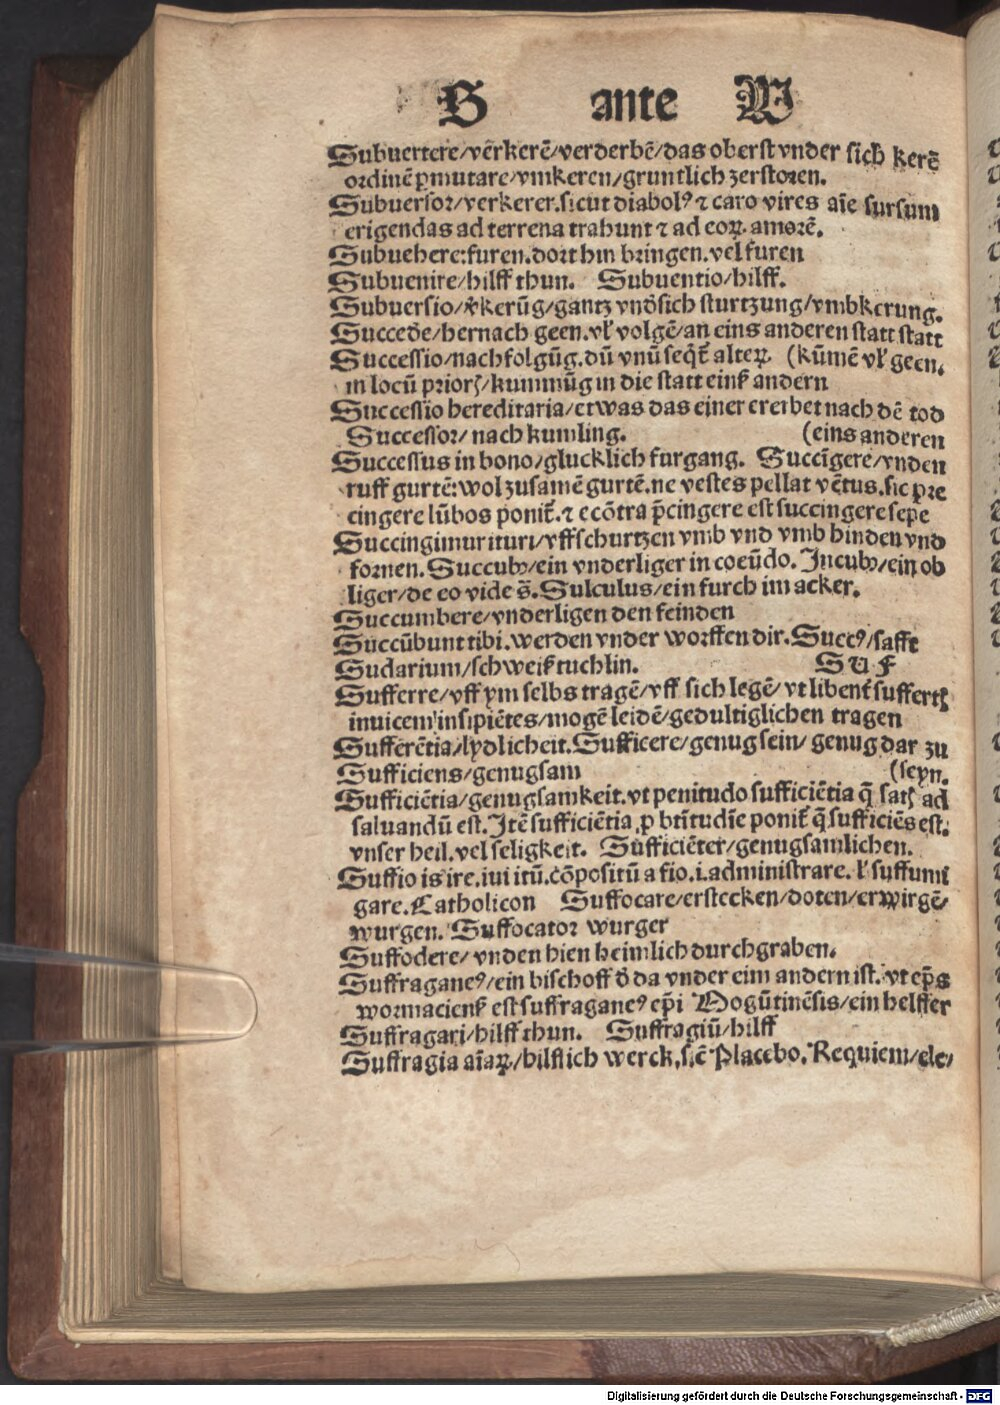 S ante W
Subuertere/vẽrkerẽ/verderbẽ/das oberst vnder sich kerẽ
ordinẽ ꝑmutare/vmkeren/gruntlich zerstoren.
Subuersor/verkerer.sicut diabolꝰ ⁊ caro vires aĩe sursum
erigendas ad terrena trahunt ⁊ ad eoꝝ amorẽ.
Subuehere:furen.dort hin bringen.vel furen
Subuenire/hilff thun. Subuentio/hilff.
Subuersio/v̾kerũg/gantz vnd̾sich sturtzung/vmbkerung.
Succed̾e/hernach geen.vl̾ volgẽ/an eins anderen statt statt
Successio/nachfolgũg.dũ vnũ seq̃t̃ alteꝝ (kũmẽ vl̾ geen.
in locũ priorꝭ/kummũg in die statt einß andern
Successio hereditaria/etwas das einer ererbet nach dẽ tod
Successor/nach kumling. (eins anderen
Successus in bono/glucklich furgang. Succĩgere/vnden
ruff gurtẽ:wol zusamẽ gurtẽ.ne vestes pellat vẽtus.sic pre
cingere lũbos ponit̃.⁊ ecõtra p̃cingere est succingere sepe
Succingimur ituri/vffschurtzen vmb vnd vmb binden vnd
fornen. Succubꝰ/ein vnderliger in coeũdo. Incubꝰ/ein ob
liger/de eo vide s̃. Sulculus/ein furch im acker.
Succumbere/vnderligen den feinden
Succũbunt tibi.werden vnder worffen dir. Succꝰ/safft
Sudarium/schweißtuchlin. SUF
Sufferre/vff ym selbs tragẽ/vff sich legẽ/vt libent̃ suffertꝭ
inuicem insipiẽtes/mogẽ leidẽ/gedultiglichen tragen
Sufferẽtia/lydlicheit. Sufficere/genug sein/genug dar zu
Sufficiens/genugsam (seyn.
Sufficiẽtia/genugsamkeit.vt penitudo sufficiẽtia q̃ satꝭ ad
saluandũ est. Itẽ sufficiẽtia ꝓ btĩtudĩe ponit̃ q̃ sufficiẽs est.
vnser heil.vel seligkeit. Sufficiẽter/genugsamlichen.
Suffio is ire.iui itũ.cõpositũ a fio.i.administrare.l̾ suffumi
gare.Catholicon Suffocare/erstecken/doten/erwirgẽ/
wurgen. Suffocator wurger
Suffodere/vnden hien heimlich durchgraben.
Suffraganeꝰ/ein bischoff d̾ da vnder eim andern ist.vt ep̃s
wormacienß est suffraganeꝰ ep̃i Mogũtinẽsis/ein helffer
Suffragari/hilff thun. Suffragiũ/hilff
Suffragia aĩaꝝ/hilflich werck.s.ẽ Placebo. Requiem/ele/
Digitalisierung gefördert durch die Deutsche Forschungsgemeinschaft - DFG